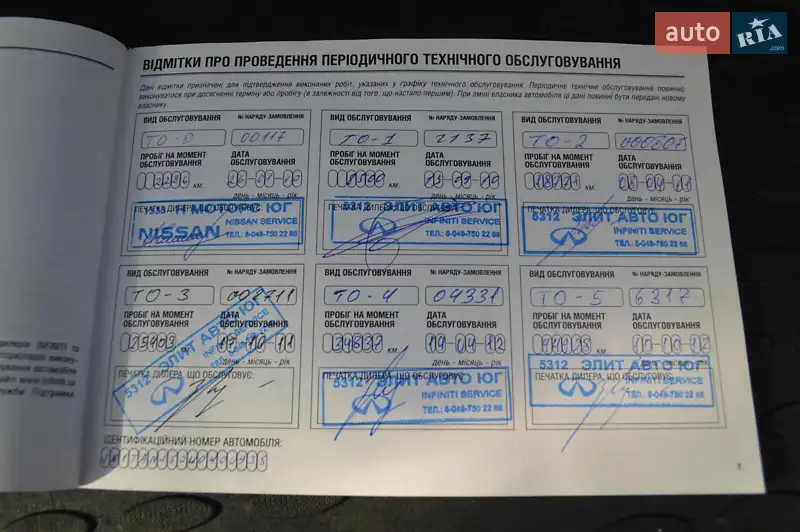 auto RIA .com
ВІДМІТКИ ПРО ПРОВЕДЕННЯ ПЕРІОДИЧНОГО ТЕХНІЧНОГО ОБСЛУГОВУВАННЯ
Дані відмітки призначені для підтвердження виконаних робіт, указаних у графіку технічного обслуговування. Періодичне технічне обслуговування повинно
виконуватися при досягненні терміну або пробігу (в залежності від того, що настало першим). При зміні власника автомобіля ці дані повинні бути передані новому
власнику.
ВИД ОБСЛУГОВУВАННЯ № НАРЯДУ-ЗАМОВЛЕННЯ
ТО-0 00117
ПРОБІГ НА МОМЕНТ ОБСЛУГОВУВАННЯ ДАТА ОБСЛУГОВУВАННЯ
км.
день - місяць - рік
ПЕЧАТКА ДИЛЕРА, ЩО ОБСЛУГОВУЄ:
НИССАН МОТОРС ЮГ
NISSAN NISSAN SERVICE
ТЕЛ.: 8-048-750 22 88
ВИД ОБСЛУГОВУВАННЯ № НАРЯДУ-ЗАМОВЛЕННЯ
ТО-1 2137
ПРОБІГ НА МОМЕНТ ОБСЛУГОВУВАННЯ ДАТА ОБСЛУГОВУВАННЯ
км.
день - місяць - рік
ПЕЧАТКА ДИЛЕРА, ЩО ОБСЛУГОВУЄ:
5312 ЭЛИТ АВТО ЮГ
INFINITI SERVICE
ТЕЛ.: 8-048-750 22 88
ВИД ОБСЛУГОВУВАННЯ № НАРЯДУ-ЗАМОВЛЕННЯ
ТО-2
ПРОБІГ НА МОМЕНТ ОБСЛУГОВУВАННЯ ДАТА ОБСЛУГОВУВАННЯ
км.
день - місяць - рік
ПЕЧАТКА ДИЛЕРА, ЩО ОБСЛУГОВУЄ:
5312 ЭЛИТ АВТО ЮГ
INFINITI SERVICE
ТЕЛ.: 8-048-750 22 88
ВИД ОБСЛУГОВУВАННЯ № НАРЯДУ-ЗАМОВЛЕННЯ
ТО-3
ПРОБІГ НА МОМЕНТ ОБСЛУГОВУВАННЯ ДАТА ОБСЛУГОВУВАННЯ
25903 км. 17-10-11
день - місяць - рік
ПЕЧАТКА ДИЛЕРА, ЩО ОБСЛУГОВУЄ:
5312 ЭЛИТ АВТО ЮГ
INFINITI SERVICE
ВИД ОБСЛУГОВУВАННЯ № НАРЯДУ-ЗАМОВЛЕННЯ
ТО-4 04331
ПРОБІГ НА МОМЕНТ ОБСЛУГОВУВАННЯ ДАТА ОБСЛУГОВУВАННЯ
34837 км. 19-04-12
день - місяць - рік
ПЕЧАТКА ДИЛЕРА, ЩО ОБСЛУГОВУЄ:
5312 ЭЛИТ АВТО ЮГ
INFINITI SERVICE
ТЕЛ.: 8-048-750 22 88
ВИД ОБСЛУГОВУВАННЯ № НАРЯДУ-ЗАМОВЛЕННЯ
ТО-5 6317
ПРОБІГ НА МОМЕНТ ОБСЛУГОВУВАННЯ ДАТА ОБСЛУГОВУВАННЯ
км.
день - місяць - рік
ПЕЧАТКА ДИЛЕРА, ЩО ОБСЛУГОВУЄ:
5312 ЭЛИТ АВТО ЮГ
INFINITI SERVICE
ТЕЛ.: 8-048-750 22 88
ІДЕНТИФІКАЦІЙНИЙ НОМЕР АВТОМОБІЛЯ: